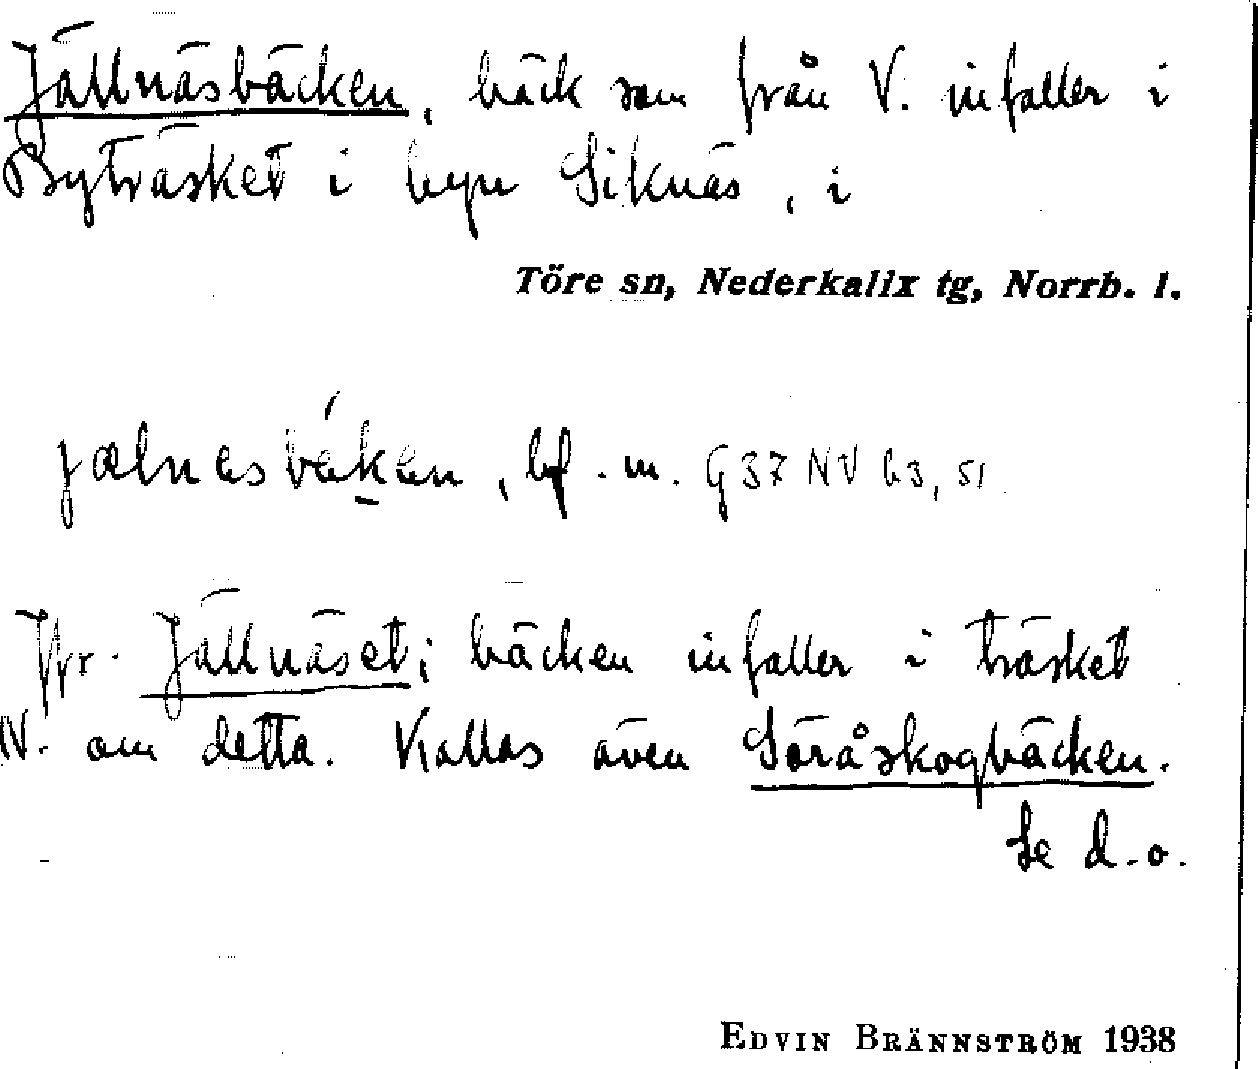 Jällnäsbäcken, bäck som från V. infaller i
Byträsket i byn Siknäs, i
Töre sn, Nederkalix tg, Norrb. l.
jælnesbékæn, bf. m. G37 NV b3, 51
Jfr. Jällnäset; bäcken infaller i träsket
NV. om detta. Kallas även Söråskogbäcken.
Se d.o.
EDVIN BRÄNNSTRÖM 1938